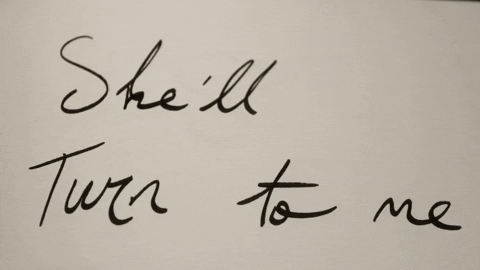 She'll
Turn to me